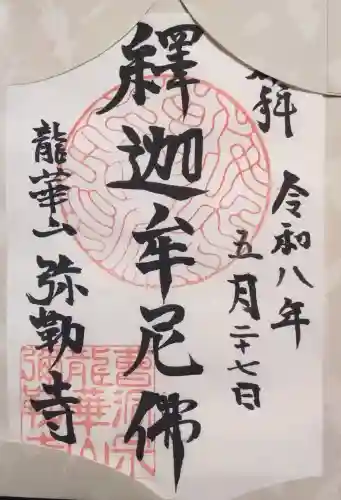 拜
令和八年
五月二十七日
釋迦牟尼佛
龍華山 弥勒寺
曹洞宗
龍華山
弥勒寺